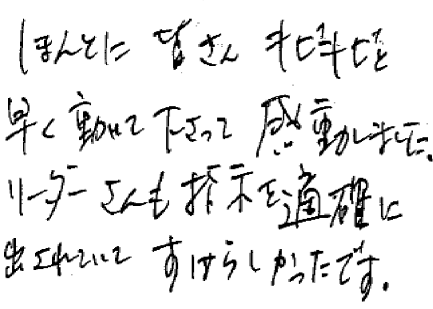 ほんとに 皆さん キビキビと
早く動いて下さって 感動しました。
リーダーさんも指示を適確に
出されていて すばらしかったです。